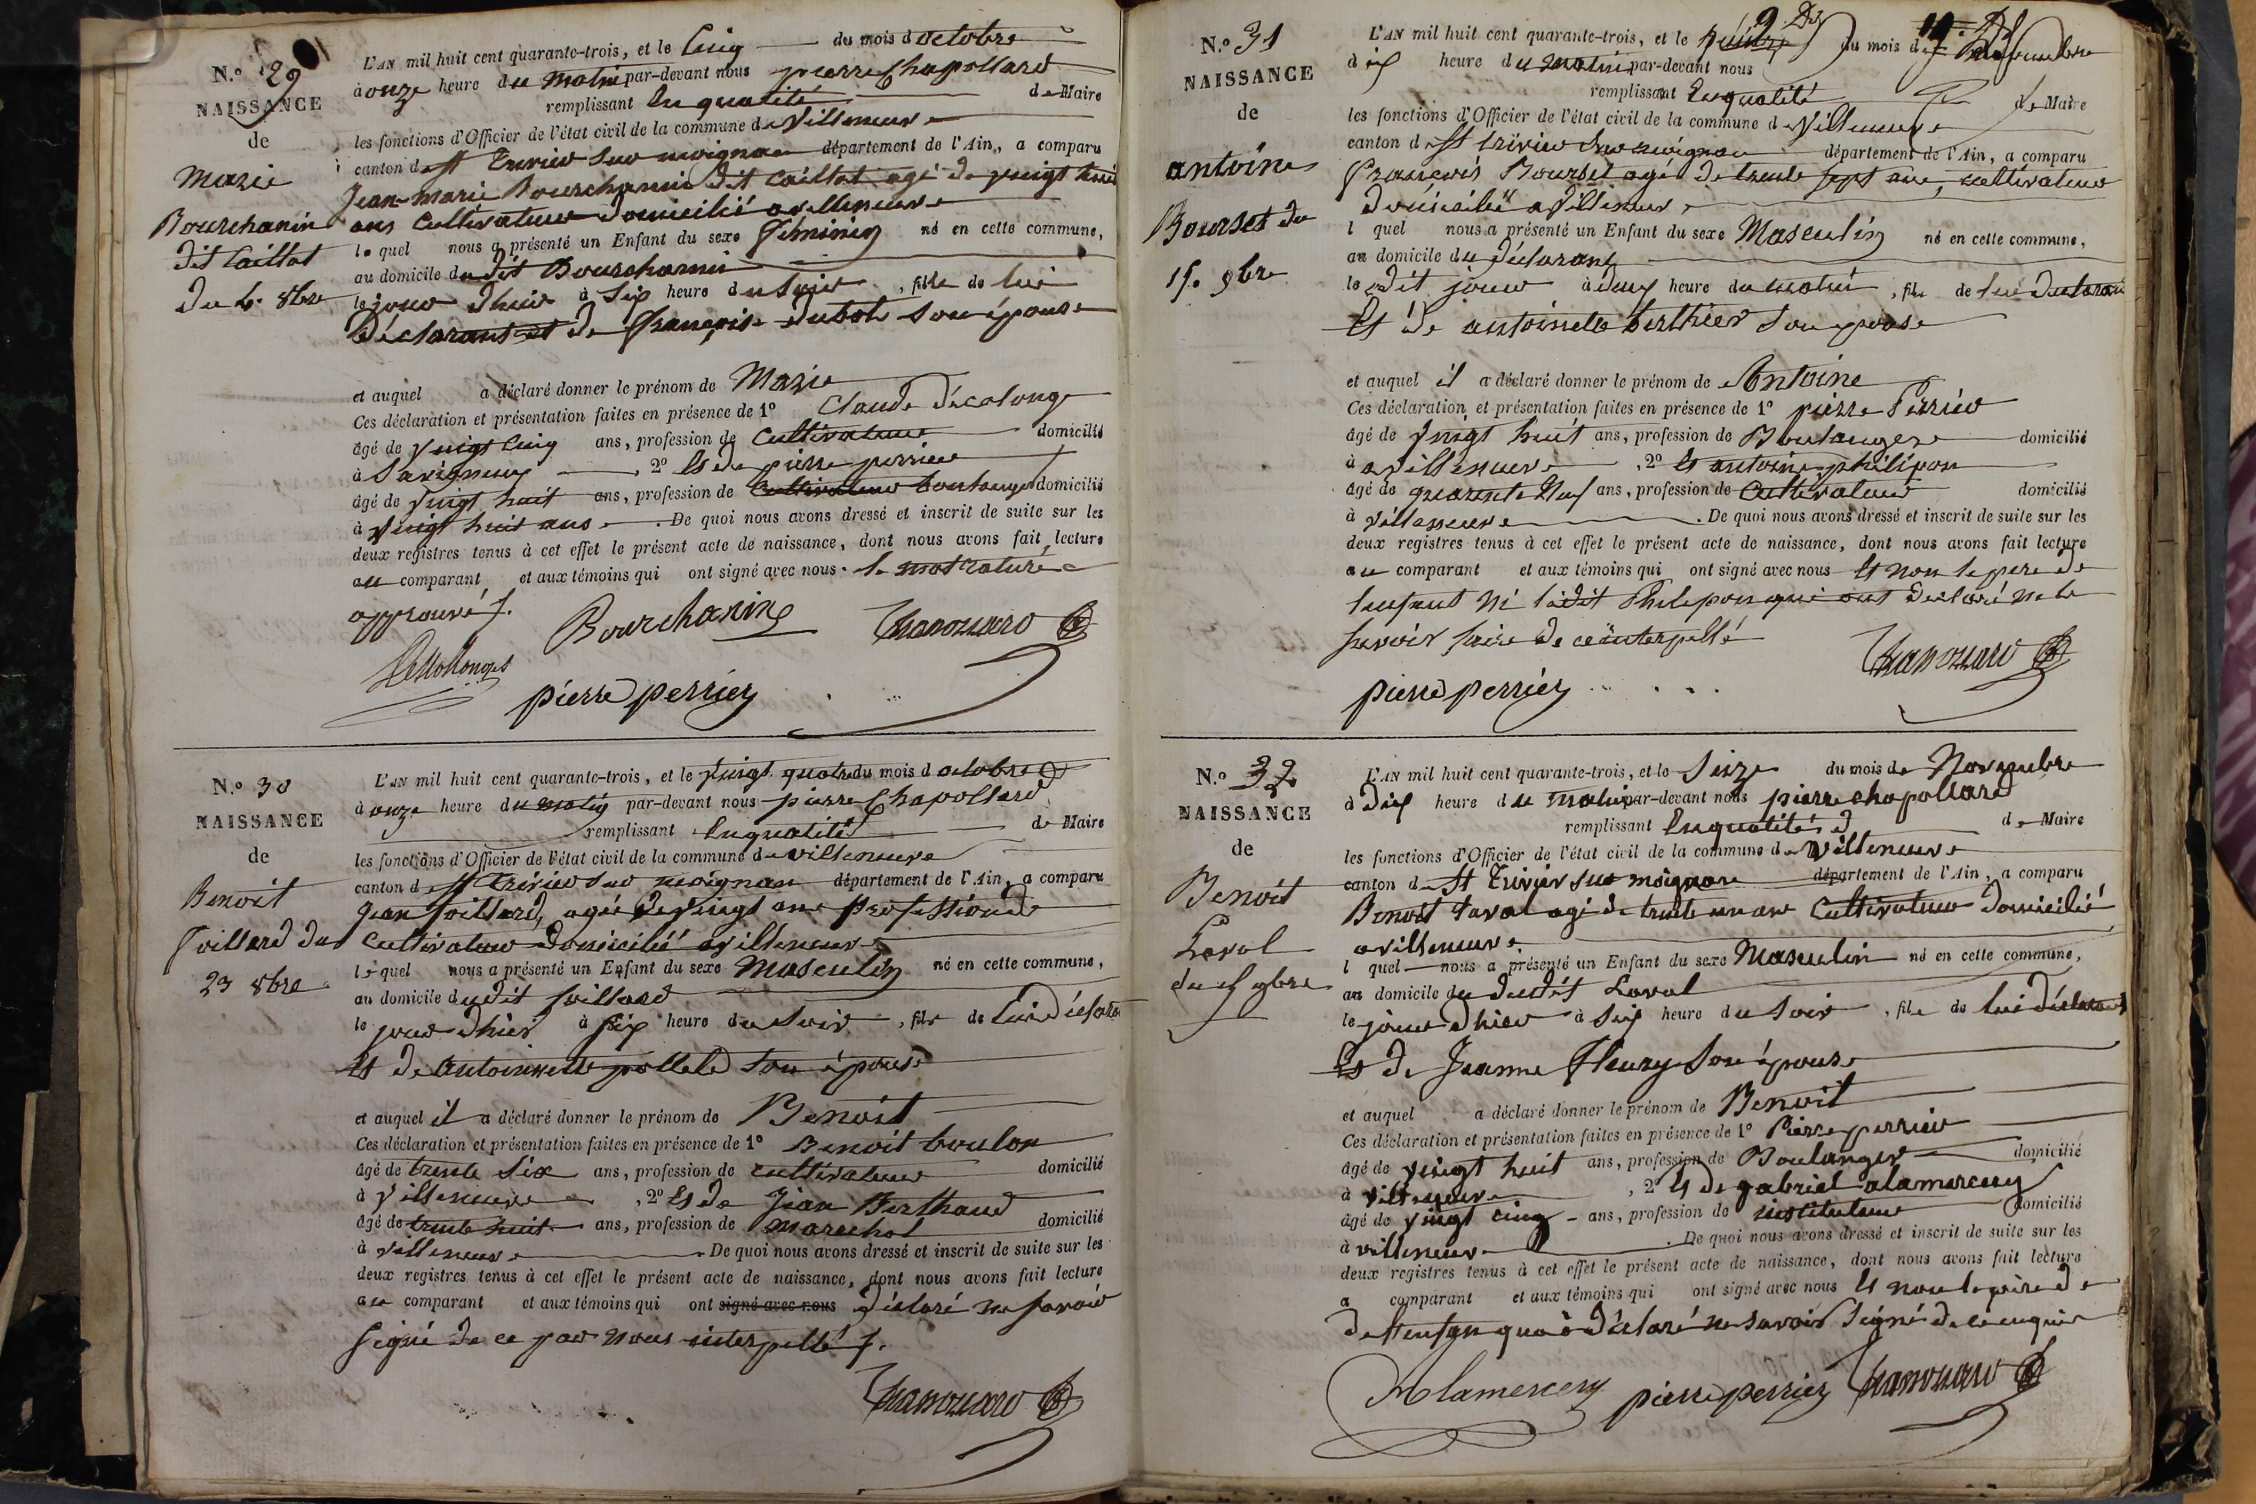 N.° 29
NAISSANCE
de
Marie
Bourchanin
dit Caillot
du 4. 8bre
L'AN mil huit cent quarante-trois, et le Cinq du mois d octobre
à onze heure du matin par-devant nous pierre Chapollard
remplissant En qualité de Maire
les fonctions d'Officier de l'état civil de la commune de Villeneuve
canton de St Trivier sur moignan département de l'Ain, a comparu
Jean-Marie Bourchanin dit Caillot agé de vingt huit
ans Cultivateur domicilié a villeneuve
le quel nous a présenté un Enfant du sexe féminin né en cette commune,
au domicile du dit Bourchanin
le jour d'hier à Six heure du Soir, fille de lui
Déclarant et de françoise dubost son épouse
et auquel a déclaré donner le prénom de Marie
Ces déclaration et présentation faites en présence de 1° Claude Décolonge
âgé de vingt cinq ans, profession de Cultivateur domicilié
à Savigneux, 2° Et de pierre perrier
âgé de vingt huit ans, profession de Cultivateur boulanger domicilié
à vingt huit ans. De quoi nous avons dressé et inscrit de suite sur les
deux registres tenus à cet effet le présent acte de naissance, dont nous avons fait lecture
au comparant et aux témoins qui ont signé avec nous. le mot rature
approuvé.
Bourchanin
pierre perrier
N.° 30
NAISSANCE
de
Benoit
foillard du
23 8bre
L'AN mil huit cent quarante-trois, et le vingt quatre du mois d octobre
à onze heure du matin par-devant nous pierre Chapollard
remplissant En qualité de Maire
les fonctions d'Officier de l'état civil de la commune de villeneuve
canton de St Trivier sur moignan département de l'Ain, a comparu
Jean foillard, agée de vingt ans profession de
Cultivateur domicilié a villeneuve
le quel nous a présenté un Enfant du sexe Masculin né en cette commune,
au domicile du dit foillard
le jour d'hier à six heure du Soir, fils de lui Déclarant
Et de Antoinette pollet son épouse
et auquel il a déclaré donner le prénom de Benoit
Ces déclaration et présentation faites en présence de 1° Benoit boulon
âgé de trente Six ans, profession de cultivateur domicilié
à Villeneuve, 2° Et de Jean Berthaud
âgé de trente huit ans, profession de marechal domicilié
à villeneuve. De quoi nous avons dressé et inscrit de suite sur les
deux registres tenus à cet effet le présent acte de naissance, dont nous avons fait lecture
au comparant et aux témoins qui ont signé avec nous déclaré ne savoir
signé de ce par nous interpellé.
N.° 31
NAISSANCE
de
antoine
Bourset du
15. 9bre
L'AN mil huit cent quarante-trois, et le du mois de
à dix heure du matin par-devant nous
remplissant En qualité de Maire
les fonctions d'Officier de l'état civil de la commune de Villeneuve
canton de St trivier sur moignan département de l'Ain, a comparu
François Bourset agé de trente sept ans, cultivateur
domicilié a Villeneuve
l quel nous a présenté un Enfant du sexe Masculin né en cette commune,
au domicile du déclarant
le dit jour à deux heure du matin, fils de lui Déclarant
Et de antoinette berthier son épouse
et auquel il a déclaré donner le prénom de Antoine
Ces déclaration et présentation faites en présence de 1° pierre Perrier
âgé de vingt huit ans, profession de Boulanger domicilié
à a villeneuve, 2° Et antoine philipon
âgé de quarante Neuf ans, profession de Cultivateur domicilié
à villeneuve. De quoi nous avons dressé et inscrit de suite sur les
deux registres tenus à cet effet le présent acte de naissance, dont nous avons fait lecture
au comparant et aux témoins qui ont signé avec nous Et non le pere de
l'enfant ni ledit Philipon qui ont déclaré ne le
savoir faire de ce interpellé
pierre perrier
N.° 32
NAISSANCE
de
Benoit
Laval
du 15 9bre
L'AN mil huit cent quarante-trois, et le Seize du mois de Novembre
à Dix heure du matin par-devant nous pierre chapollard
remplissant En qualité de Maire
les fonctions d'Officier de l'état civil de la commune de Villeneuve
canton de St Trivier sur moignan département de l'Ain, a comparu
Benoit Laval agé de trente un ans Cultivateur domicilié
a villeneuve
l quel nous a présenté un Enfant du sexe Masculin né en cette commune,
au domicile du dudit Laval
le jour d'hier à Six heure du Soir, fils de lui déclarant
Et de Jeanne fleury son épouse
et auquel a déclaré donner le prénom de Benoit
Ces déclaration et présentation faites en présence de 1° Pierre perrier
âgé de vingt huit ans, profession de Boulanger domicilié
à Villeneuve, 2° Et de gabriel alamercery
âgé de vingt cinq ans, profession de instituteur domicilié
à villeneuve. De quoi nous avons dressé et inscrit de suite sur les
deux registres tenus à cet effet le présent acte de naissance, dont nous avons fait lecture
a comparant et aux témoins qui ont signé avec nous Et non le pere de
qui a déclaré ne savoir Signé de ce enquis
Alamercery pierre perrier